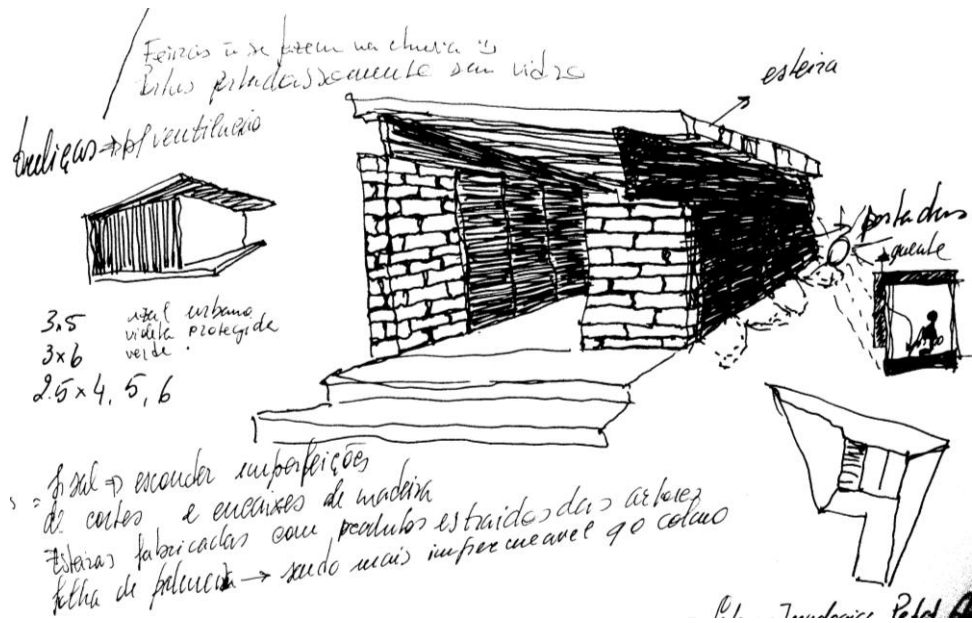 Feiras ñ se fazem na chuva
portadas somente sem vidro
esteira
treliças → p/ ventilação
portadas
quente
3,5
urbano
protegida
3x6
verde
2.5 x 4, 5, 6
sisal → esconder imperfeições
de cortes e encaixes de madeira
Esteiras fabricadas com produtos estraidos das arbores
folha de → sendo mais impermeavel q o colmo